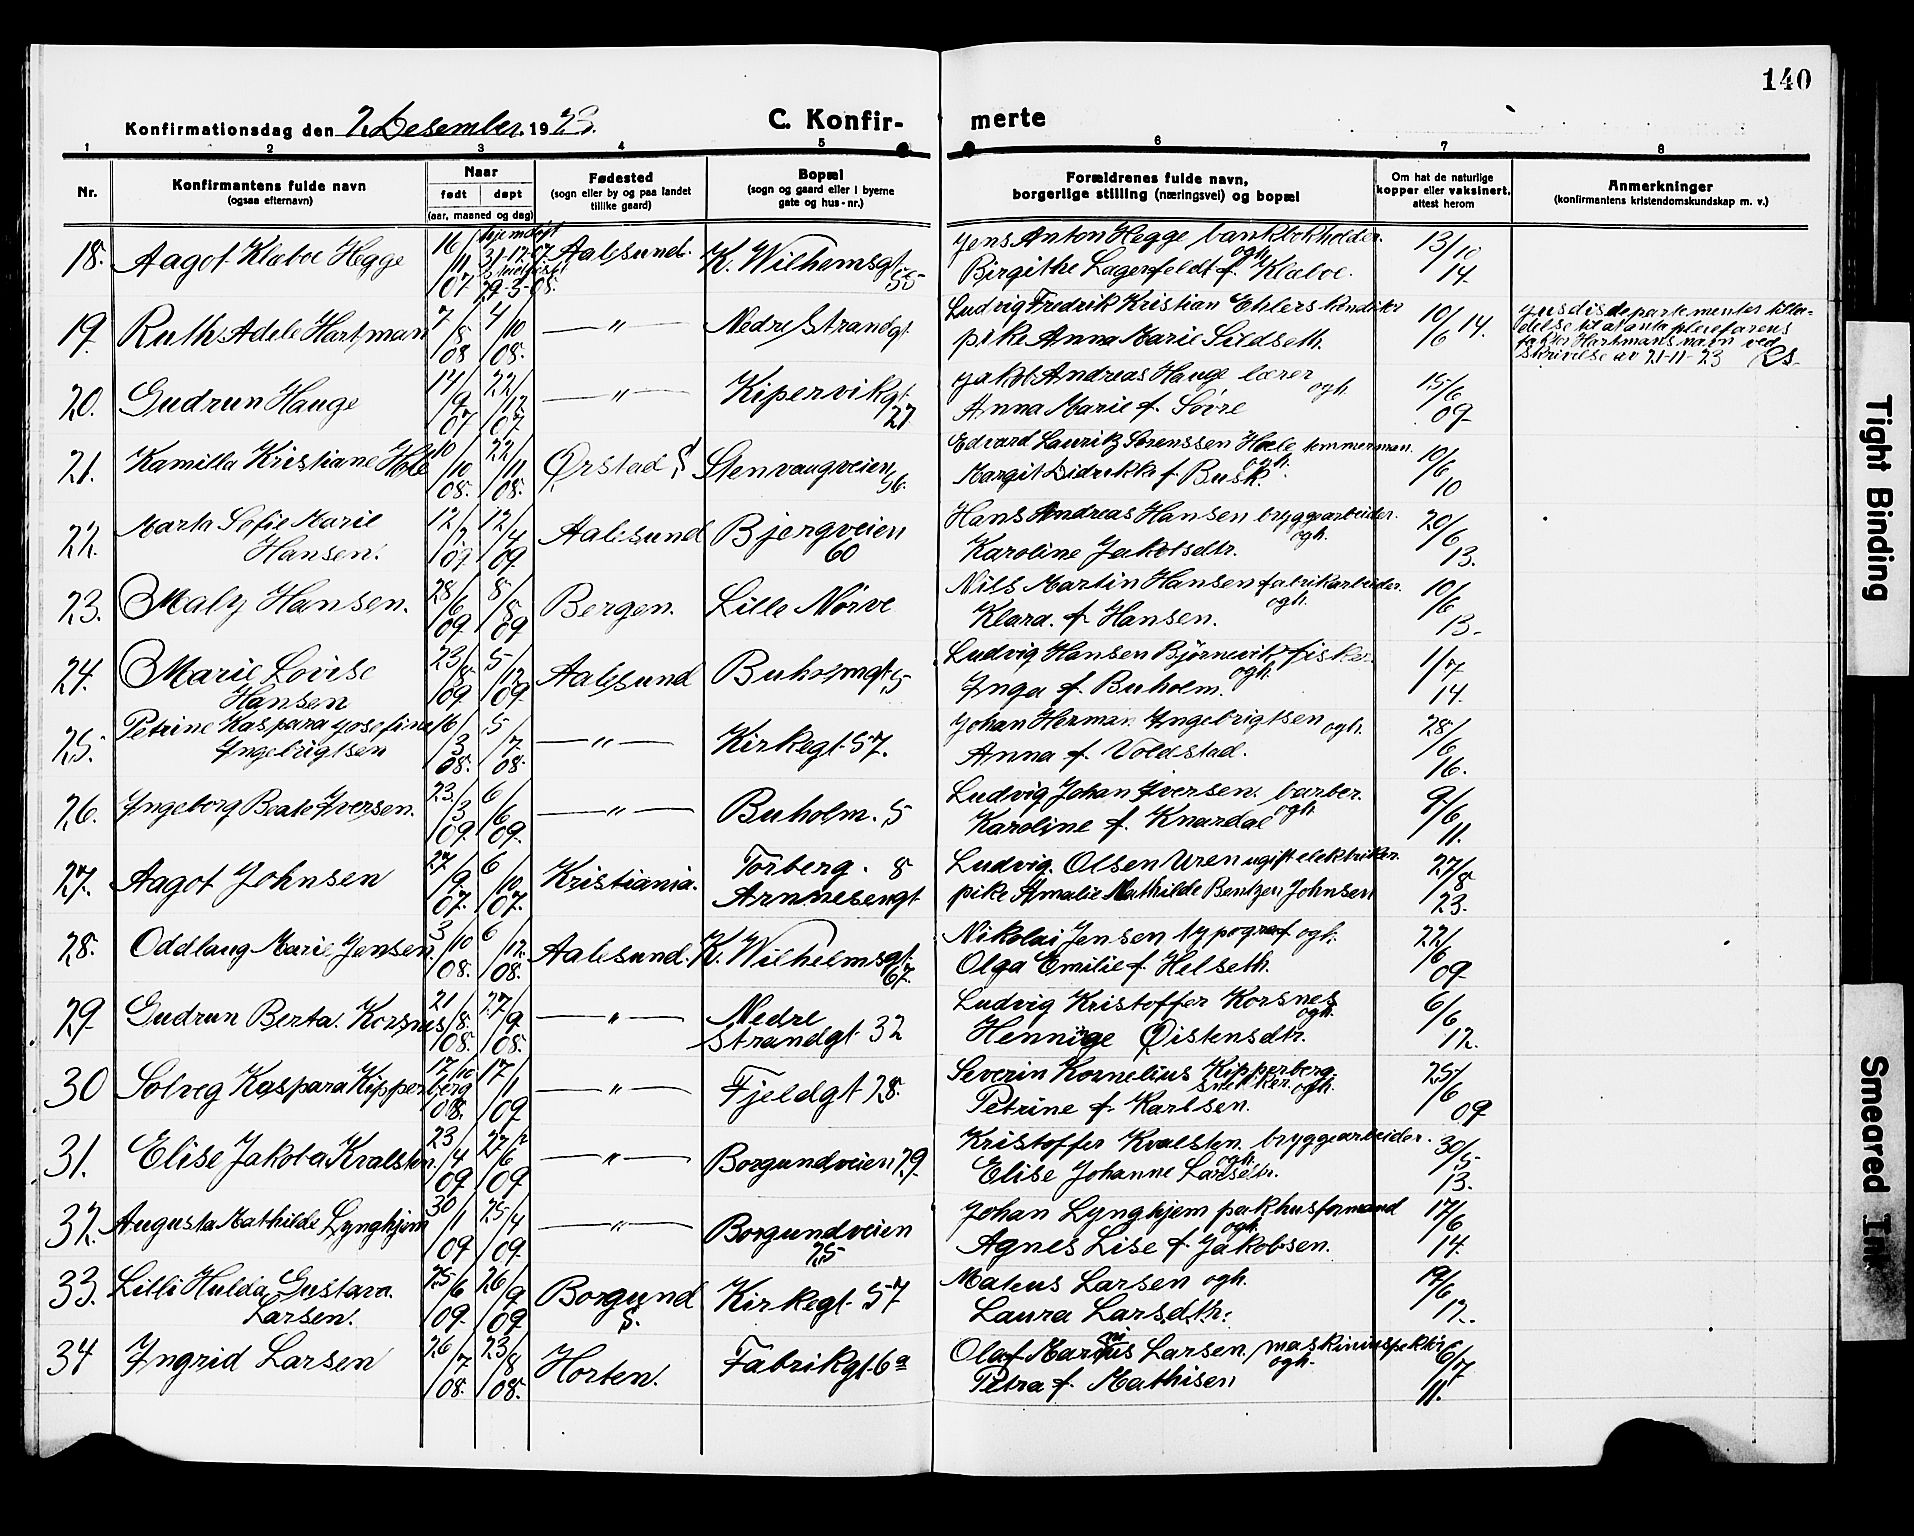 140
Konfirmationsdag den 2. Desember 1923.
C. Konfirmerte
1 2 3 4 5 6 7 8
Nr.
Konfirmantens fulde navn
(ogsaa efternavn)
Naar
født døpt
(aar, maaned og dag)
Fødested
(sogn eller by og paa landet
tillike gaard)
Bopæl
(sogn og gaard eller i byerne
gate og hus-nr.)
Forældrenes fulde navn,
borgerlige stilling (næringsvei) og bopæl
Om hat de naturlige
kopper eller vaksinert,
attest herom
Anmerkninger
(konfirmantens kristendomskundskap m. v.)
18. Aagot Klaboe Hegge 16/11 07 hjemdøpt 31-12-07 29-3-08. Aalesund. K. Wilhemsgt. 55 Jens Anton Hegge bankbokholder ogh.
Birgithe Lagenfeldt f. Klaboe. 13/10 14.
19. Ruth Adele Hartman 7/5 08 4/10 08. —"— Nedre Strandgt. Ludvig Fredrik Kristian Ehlers konditor
pike Anna Marie Sildseth. 10/6 14.
Jusdisdepartementes tilla-
delse til at anta pleiefarens
fakter Hartmans navn ved
skrivelse av 21-11-23
20. Gudrun Hauge 17/9 07 22/12 07. —"— Kipervikgt. 27 Jakob Andreas Hauge lærer ogh.
Anna Marie f. Sovre 15/6 09.
21. Kamilla Kristiane Hole 10/10 08. 22/11 08. Ørstad S. Stenvaagveien 56. Edvard Lauritz Sorenssen Hole tømmerman. ogh.
Margit Didrikke f. Busk. 10/6 10
22. Marta Sofie Marie
Hansen. 12/2 09 12/4 09 Aalesund Bjergveien
60 Hans Andreas Hansen bryggearbeider. ogh.
Karoline Jakobsdtr. 20/6 13.
23. Maly Hansen. 28/6 09 8/8 09 Bergen. Lille Nørve Nils Martin Hansen fabrikarbeider. ogh.
Klara. f. Hansen. 10/6 13.
24. Marie Lovise
Hansen 23/8 09 5/12 09 Aalesund Buholmgt. 5 Ludvig Hansen Bjørnevik fisker ogh.
Inga f. Buholm. 1/7 14.
25. Petrine Kaspara Josefine
Ingebrigtsen 16/3 08. 5/7 08. —"— Kirkegt. 57. Johan Herman Ingebrigtsen ogh.
Anna f. Voldstad. 28/6 16.
26. Ingeborg Beate Iversen. 23/3 09 6/6 09. —"— Buholm. 5 Ludvig Johan Iversen. barber. ogh.
Karoline f. Knardal 9/6 11.
27. Aagot Johnsen 27/9 07. 6/10 07. Kristiania. Torberg. 8
Arnnesengt Ludvig. Olsen Uren ugift elektriker.
pike Amalie Mathilde Bentzen Johnsen 27/8 23.
28. Oddlaug Marie Jensen 3/10 08. 6/12 08. Aalesund. K. Wilhelmsgt. 67. Nikolai Jensen typograf ogh.
Olga Emilie f. Helseth. 22/6 09.
29. Gudrun Berta. Korsnes 21/8 08. 27/9 08. —"— Nedre
Strandgt 32 Ludvig Kristoffer Korsnes ogh.
Hennige Øistensdtr. 6/6 12.
30 Solveg Kaspara Kipperberg 12/10 08. 17/1 09 —"— Fjeldgt 28. Severin Kornelius Kipperberg. snekker. ogh.
Petrine f. Karlsen. 25/6 09
31. Elise Jakoba Kvalsten. 23/4 09 27/6 09 —"— Borgundveien 29. Kristoffer Kvalsten. bryggearbeider. ogh.
Elise Johanne Larsdtr. 30/5 13.
32. Augusta Mathilde Lynghjem 30/1 09 25/4 09. —"— Borgundveien
25 Johan Lynghjem pakhusformand ogh.
Agnes Lise f. Jakobsen. 17/6 14.
33. Lilli Hulda Gustava.
Larsen. 25/6 09. 26/9 09. Borgund
S. Kirkegt. 57 Mateus Larsen ogh.
Laura Larsdth: 19/6 12.
34 Ingrid Larsen 26/7 08. 23/8 08. Horten. Fabrikgt. 6a Olaf Marinus Larsen. maskininspektør ogh.
Petra f. Mathisen 6/7 11.
Tight Binding
Smeared Ink